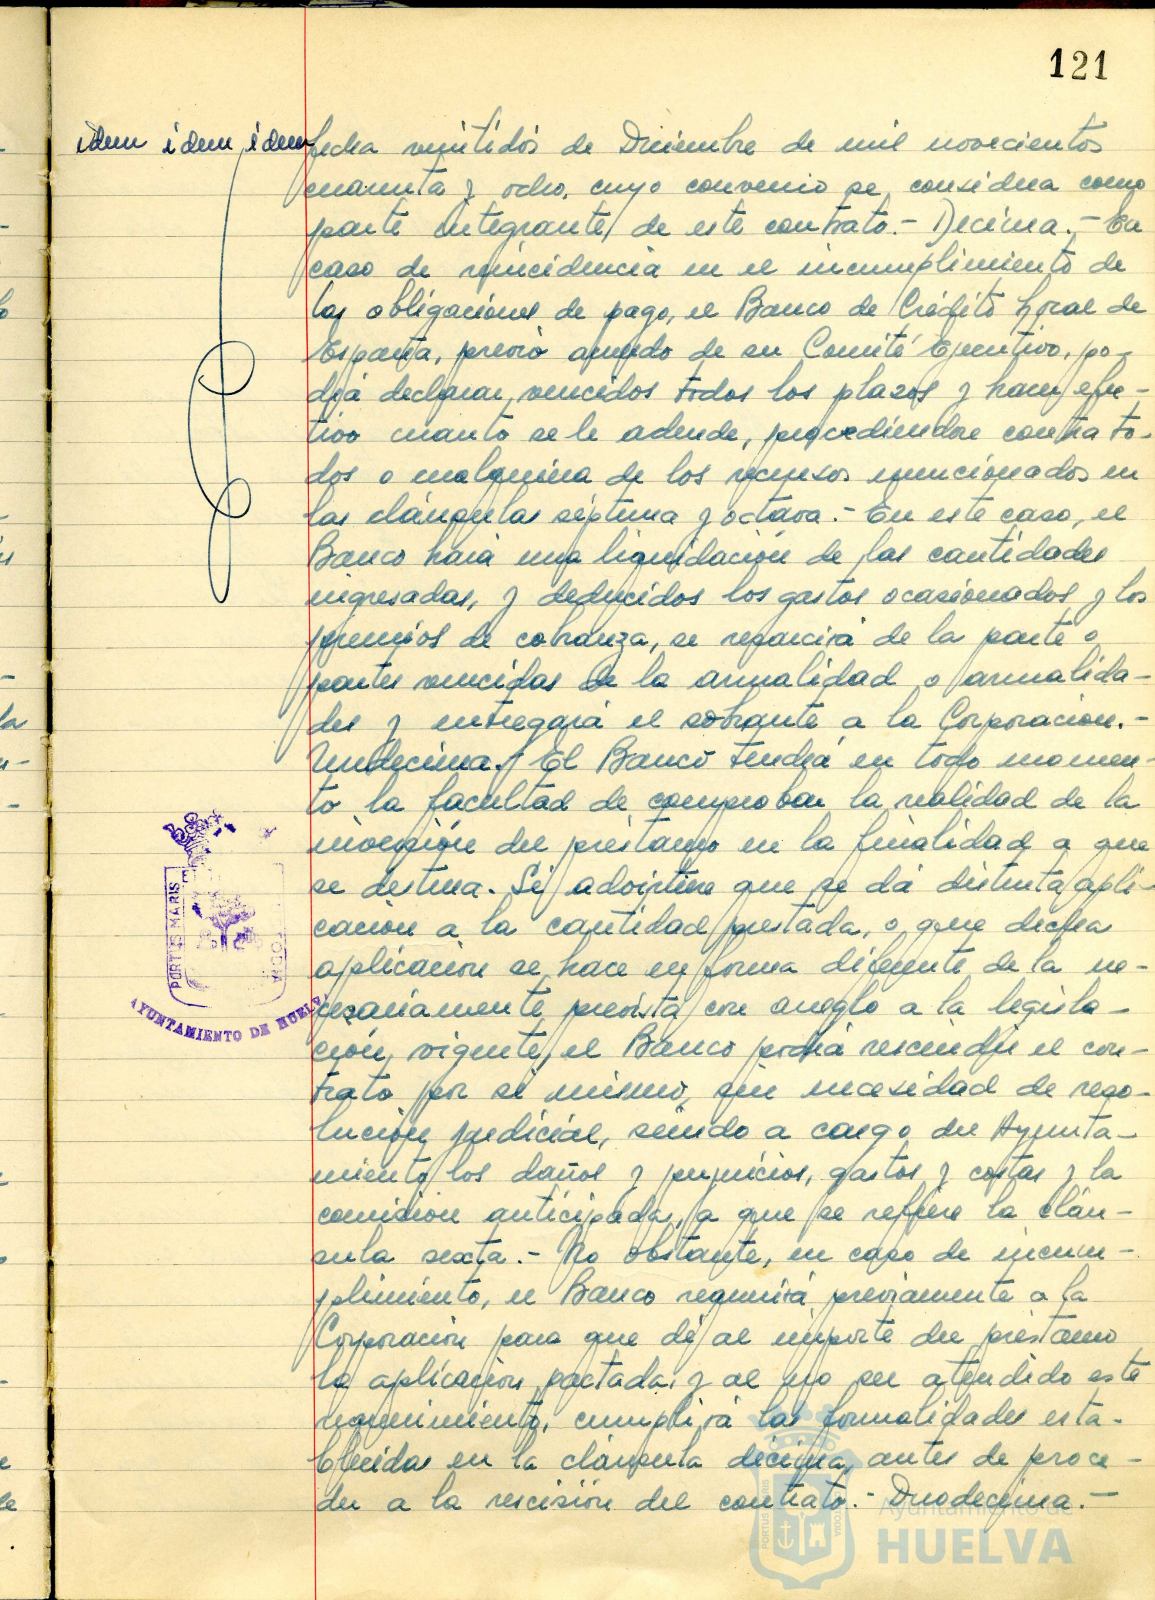 121
idem idem idem
fecha veintidós de Diciembre de mil novecientos
cuarenta y ocho, cuyo convenio se considera como
parte integrante de este contrato.- Decima.- En
caso de reincidencia en el incumplimiento de
las obligaciones de pago, el Banco de Crédito Local de
España, previo acuerdo de su Comité Ejecutivo, po-
drá declarar vencidos todos los plazos y hacer efec-
tivo cuanto se le adeude, procediendose contra to-
dos o cualquiera de los recursos mencionados en
las cláusulas séptima y octava.- En este caso, el
Banco hará una liquidación de las cantidades
ingresadas, y deducidos los gastos ocasionados y los
premios de cobranza, se resarcirá de la parte o
partes vencidas de la anualidad o anualida-
des y entregará el sobrante a la Corporación.-
Undecima.- El Banco tendrá en todo momen-
to la facultad de comprobar la realidad de la
inversión del préstamo en la finalidad a que
se destina. Si advirtiese que se dá distinta apli-
cación a la cantidad prestada, o que dicha
aplicación se hace en forma diferente de la ne-
cesariamente prevista con arreglo a la legisla-
ción vigente, el Banco podrá rescindir el con-
trato por si mismo, sin necesidad de reso-
lución judicial, siendo a cargo del Ayunta-
miento los daños y perjuicios, gastos y costas y la
comisión anticipada, a que se refiere la cláu-
sula sexta.- No obstante, en caso de incum-
plimiento, el Banco requerirá previamente a la
Corporación para que dé al importe del préstamo
la aplicación pactada, y al no ser atendido este
requerimiento, cumplirá las formalidades esta-
blecidas en la cláusula décima, antes de proce-
der a la rescisión del contrato.- Duodecima.-
PORTUS MARIS
AYUNTAMIENTO DE HUELVA
Ayuntamiento de
HUELVA